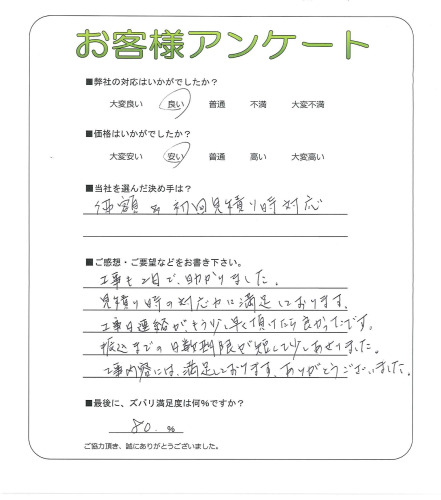 お客様アンケート
■弊社の対応はいかがでしたか？
大変良い 良い 普通 不満 大変不満
■価格はいかがでしたか？
大変安い 安い 普通 高い 大変高い
■当社を選んだ決め手は？
価額 & 初回見積り時対応
■ご感想・ご要望などをお書き下さい。
工事も2日で、助かりました。
見積り時の対応力に満足しております。
工事日連絡がもう少し早く頂けたら良かったです。
振込までの日数期限が短くて少しあせりました。
工事内容には、満足しております。ありがとうございました。
■最後に、ズバリ満足度は何%ですか？
80. %
ご協力頂き、誠にありがとうございました。